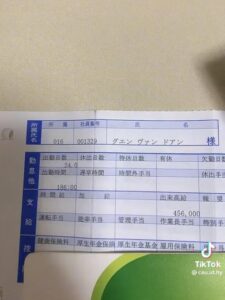 所属氏名
所属 社員番号 氏 名
016 001329 グエン ヴァン ドアン 様
勤怠他
出勤日数 休出日数 特休日数 有休 欠勤日数
24.0
出勤時間 遅早時間 時間外手当 休出手
186:00
支給
出来高給
456,000
運転手当 能率手当 管理手当 作業長手当 特別手
控
健康保険料 厚生年金保険 厚生年金基金 雇用保険料
TikTok
@cau.ut.hy